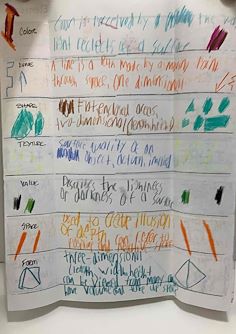 Color
Color is perceived by a the way
light reflects of a surface
LINE
A line is a path made by a moving point
through space, (one dimensional)
SHAPE
Flat enclosed areas,
two-dimensional (
TEXTURE
surface quality of an
object, actual, implied
VALUE
Describes the lightness
or darkness of a surface
SPACE
used to create illusion
of depth
FORM
three-dimensional
(length width height)
can be viewed from many
have volume and take up space